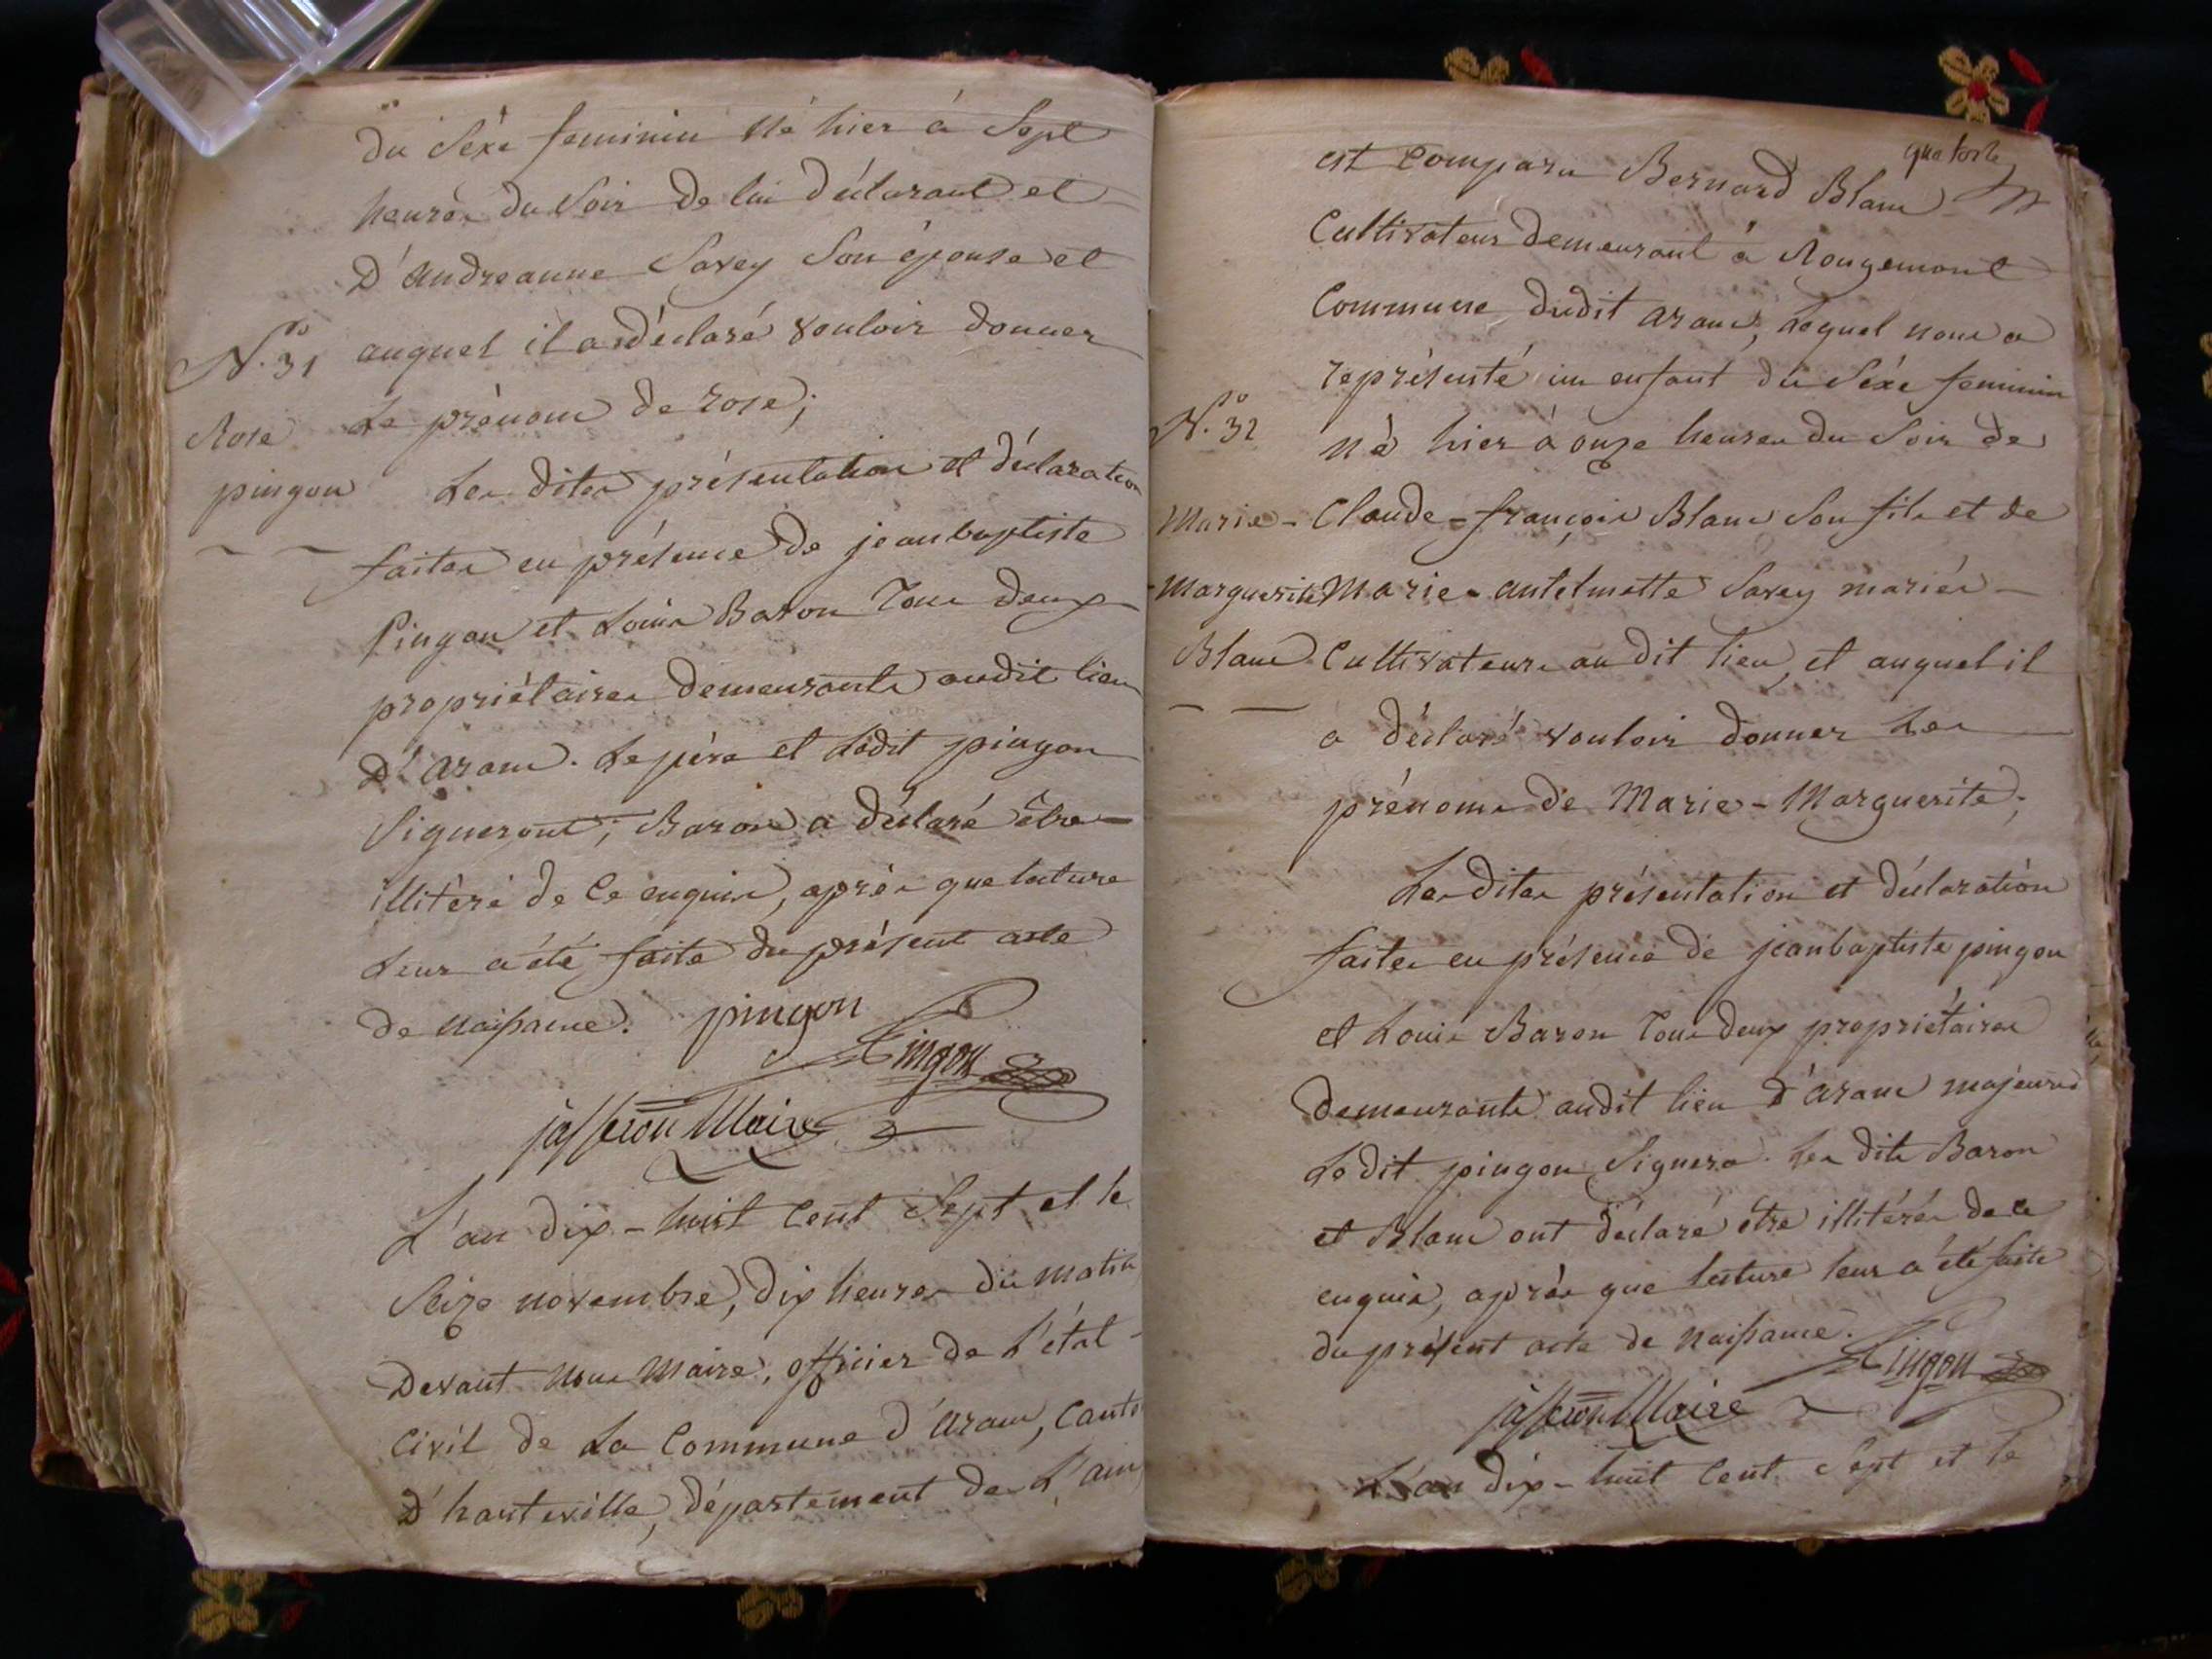 du Séxe feminin né hier à Sept
heures du Soir de lui déclarant et
D'andreanne Savey Son épouse et
N.º 31
auquel il a déclaré vouloir donner
Le prénom de rose;
Rose
pingon
Les dites présentation et déclaration
faites en présence de jeanbaptiste
Pingon et Louis Baron Tous deux
propriétaires demeurants audit lieu
D'aranc. Le père et Ledit pingon
Signeront; Baron a déclaré être
illitéré de ce enquis, après que lecture
Leur a été faite du présent acte
de naissance. pingon
Pingon
jasseron Maire
L'an dix-huit cent Sept et le
Seize novembre, dix heures du matin
Devant nous Maire, officier de L'état
civil de La Commune d'aranc, canto
D'hauteville, département de L'ain
quatorze
est comparu Bernard Blanc
Cultivateur demeurant à Rougemont
Commune dudit aranc, Lequel nous a
représenté un enfant du Séxe feminin
N.º 32
né hier à onze heures du Soir de
Marie-
Claude-françois Blanc Son fils et de
Marguerite
Marie-antelmette Savey mariés
Blanc
Cultivateurs au dit lieu, et auquel il
a déclaré vouloir donner Les
prénoms de Marie-Marguerite;
Les dites présentation et déclaration
faites en présence de jeanbaptiste pingon
et Louis Baron Tous deux propriétaires
demeurants audit lieu d'aranc majeurs
Ledit pingon Signera. Les dits Baron
et Blanc ont déclaré être illitérés de ce
enquis, après que lecture leur a été faite
du présent acte de naissance.
Pingon
jasseron Maire
L'an dix-huit cent Sept et le